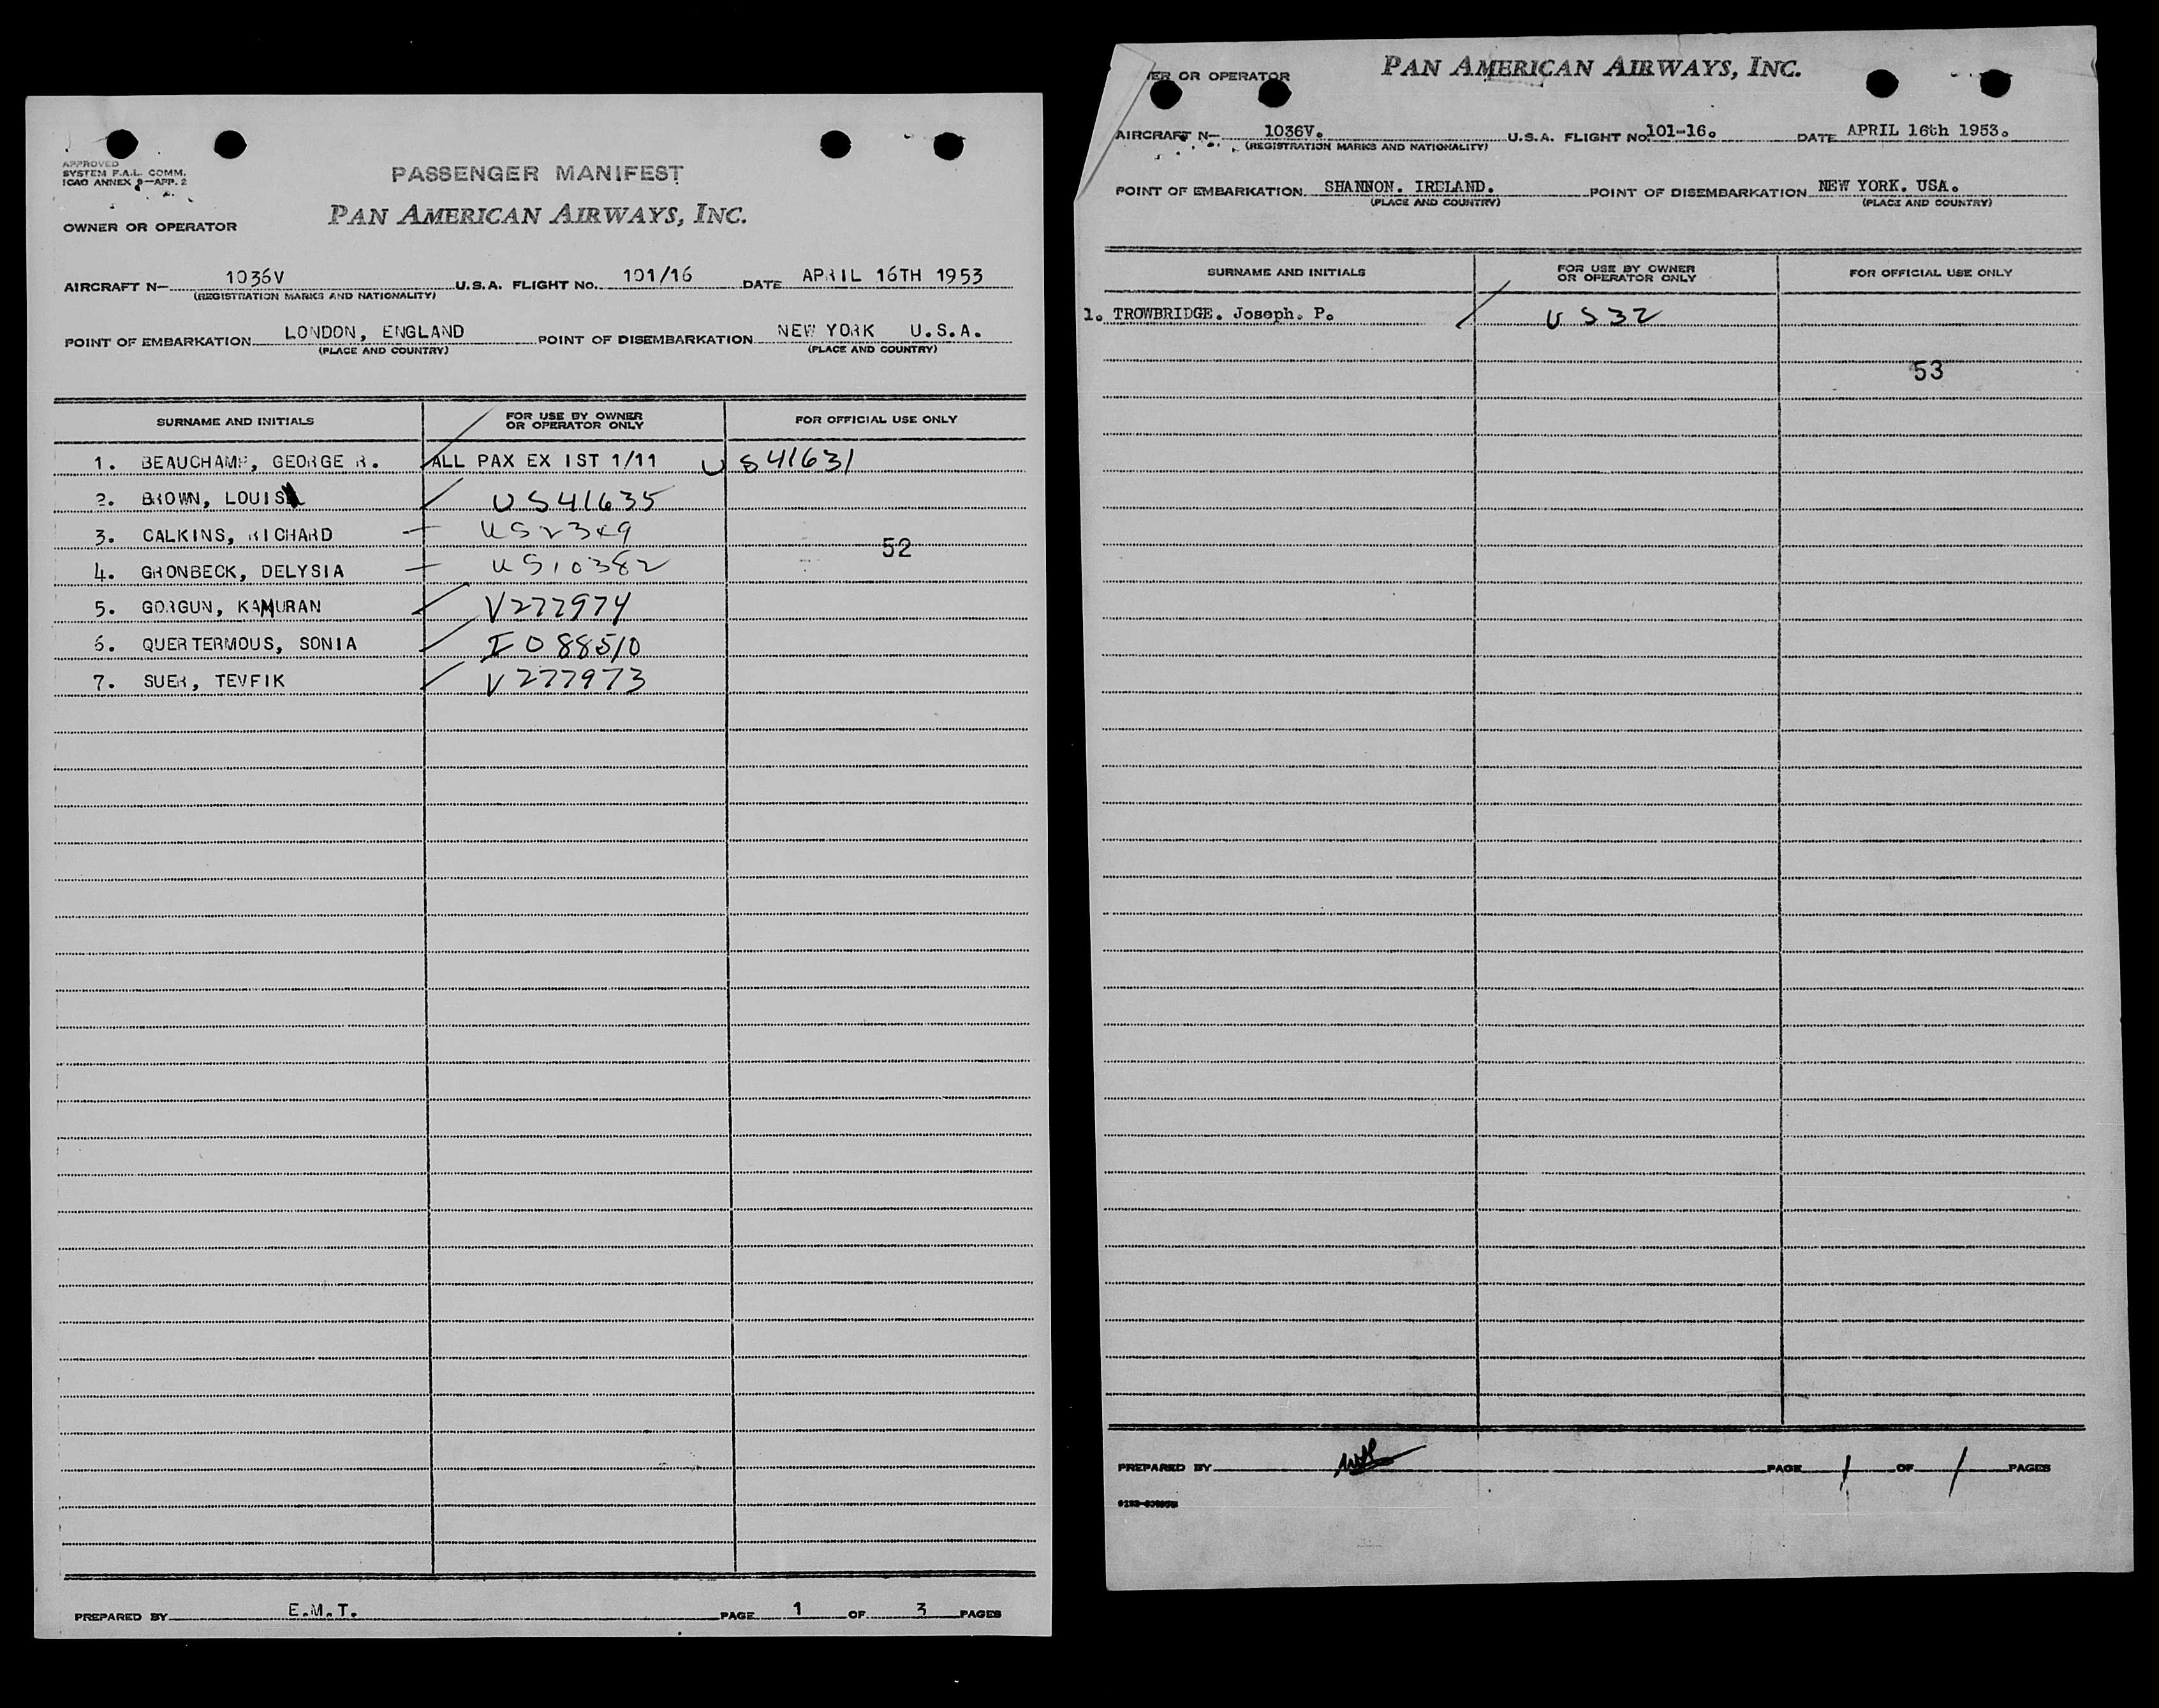 APPROVED
SYSTEM F.A.L. COMM.
ICAO ANNEX 9—APP. 2
PASSENGER MANIFEST
PAN AMERICAN AIRWAYS, INC.
OWNER OR OPERATOR
AIRCRAFT N— 1036V U.S.A. FLIGHT NO. 101/16 DATE APRIL 16TH 1953
(REGISTRATION MARKS AND NATIONALITY)
POINT OF EMBARKATION LONDON, ENGLAND POINT OF DISEMBARKATION NEW YORK U.S.A.
(PLACE AND COUNTRY) (PLACE AND COUNTRY)
SURNAME AND INITIALS FOR USE BY OWNER OR OPERATOR ONLY FOR OFFICIAL USE ONLY
1. BEAUCHAMP, GEORGE R. ALL PAX EX IST 1/11 US41631
2. BROWN, LOUIS US41635
3. CALKINS, RICHARD US2349
52
4. GRONBECK, DELYSIA US10382
5. GORGUN, KAMURAN V277974
6. QUERTERMOUS, SONIA I088510
7. SUER, TEVFIK V277973
PREPARED BY E.M.T. PAGE 1 OF 3 PAGES
PAN AMERICAN AIRWAYS, INC.
ER OR OPERATOR
AIRCRAFT N— 1036V. U.S.A. FLIGHT NO. 101-16. DATE APRIL 16th 1953.
(REGISTRATION MARKS AND NATIONALITY)
POINT OF EMBARKATION SHANNON. IRELAND. POINT OF DISEMBARKATION NEW YORK. USA.
(PLACE AND COUNTRY) (PLACE AND COUNTRY)
SURNAME AND INITIALS FOR USE BY OWNER OR OPERATOR ONLY FOR OFFICIAL USE ONLY
1. TROWBRIDGE. Joseph. P. US32
53
PREPARED BY PAGE 1 OF 1 PAGES